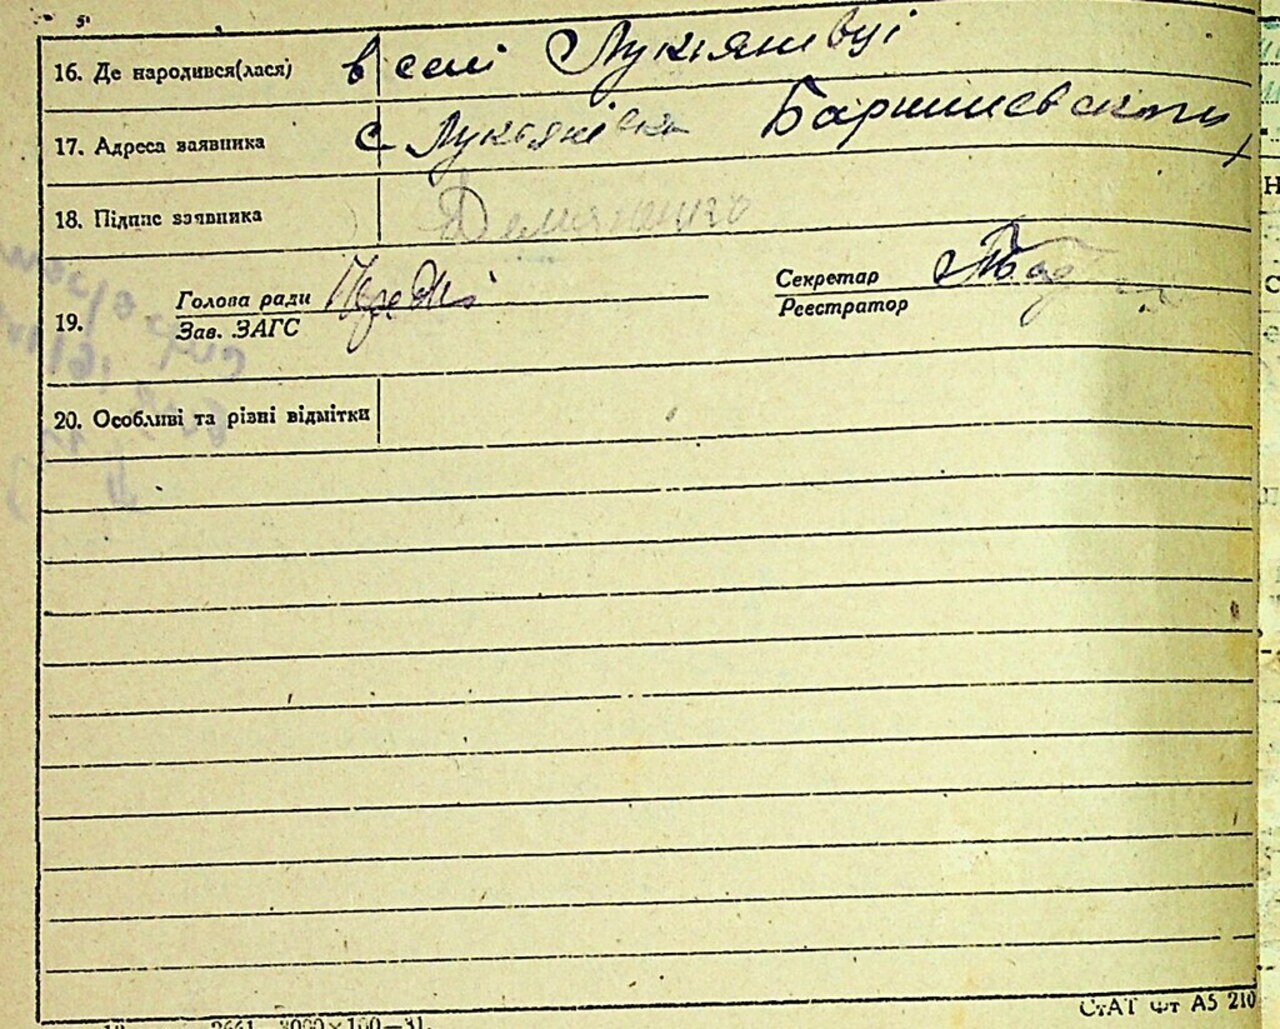 16. Де народився(лася) в селі Лукіянивці
17. Адреса заявника с Лукьянівка Баришевського
18. Підпис заявника Демяненко
Голова ради
Секретар
19.
Зав. ЗАГС
Реестратор
20. Особливі та різні відмітки
СтАТ фт А5 210
2661 3000×100—31.